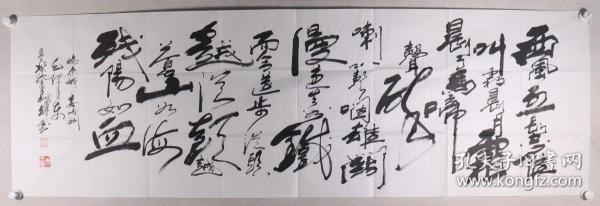 西風烈長空雁
叫霜晨月霜
晨月馬蹄
聲碎
喇叭聲咽雄關
漫道真如鐵
而今邁步從頭
越從頭越
蒼山如海
殘陽如血
憶秦娥 婁山關
毛澤東
孔夫子旧书网
www.kongfz.com